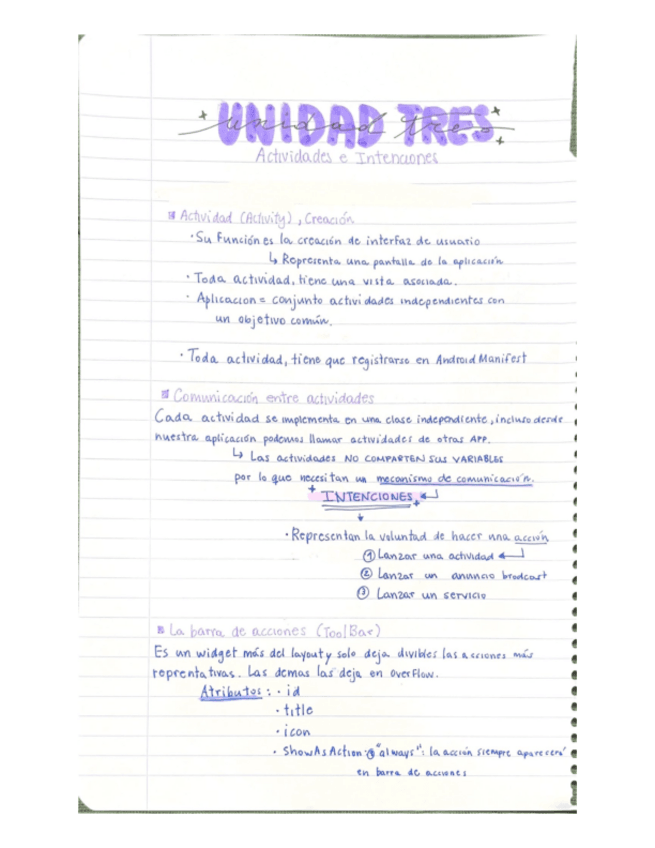 UNIDAD TRES
unidad tres
Actividades e Intenciones
Actividad (Activity), Creación
· Su Función es la creación de interfaz de usuario
↳ Representa una pantalla de la aplicación
· Toda actividad, tiene una vista asociada.
· Aplicacion = conjunto actividades independientes con
un objetivo común.
· Toda actividad, tiene que registrarse en Android Manifest
Comunicación entre actividades
Cada actividad se implementa en una clase independiente, incluso desde
nuestra aplicación podemos llamar actividades de otras APP.
↳ Las actividades NO COMPARTEN SUS VARIABLES
por lo que necesitan un mecanismo de comunicación.
INTENCIONES
· Representan la voluntad de hacer una acción
① Lanzar una actividad
② Lanzar un anuncio brodcast
③ Lanzar un servicio
La barra de acciones (ToolBar)
Es un widget más del layout y solo deja divibles las acciones más
reprentativas. Las demas las deja en OverFlow.
Atributos: · id
· title
· icon
· ShowAsAction "always": la acción siempre aparecerá
en barra de acciones